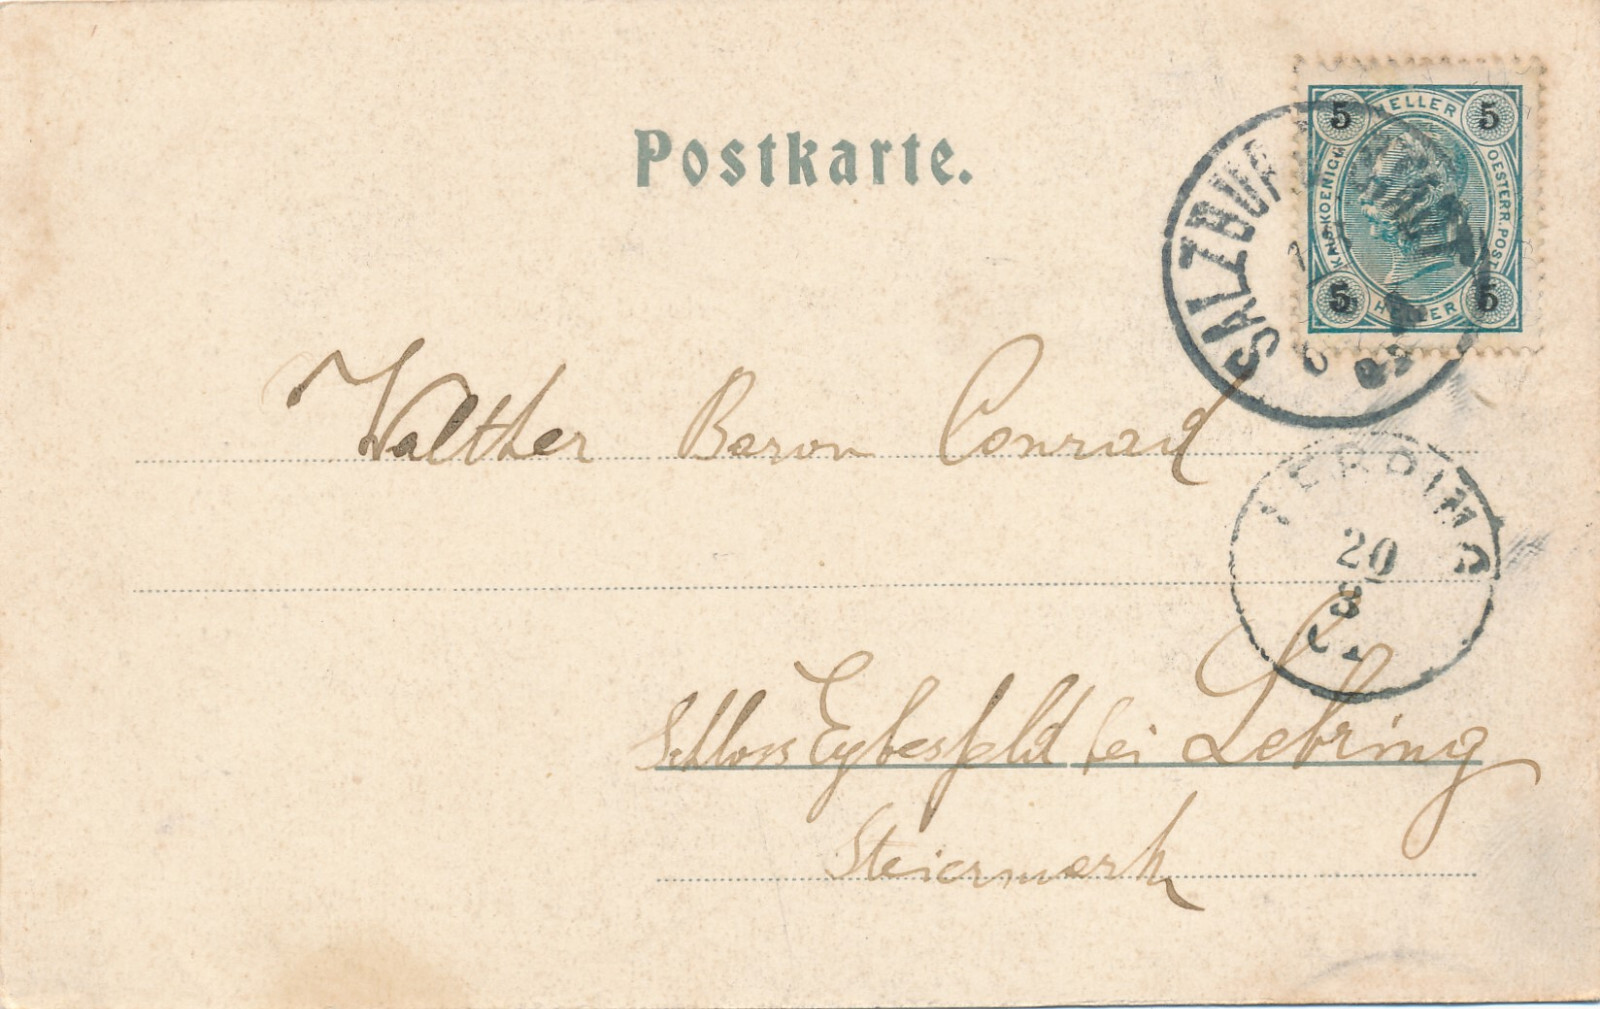 Postkarte.
5 HELLER 5
KAIS. KOENIGL.
OESTERR. POST
5 HELLER 5
SALZBURG STADT
Walther Baron Conrad
20
8
Schloss Eybesfeld bei Lebring
Steiermark